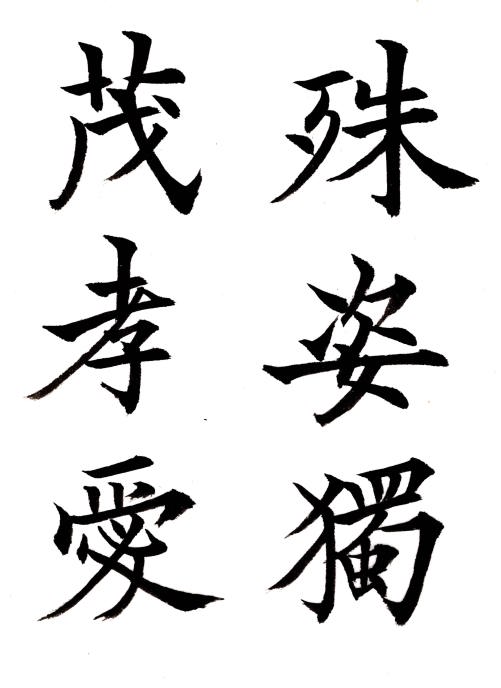 殊姿獨
茂孝愛